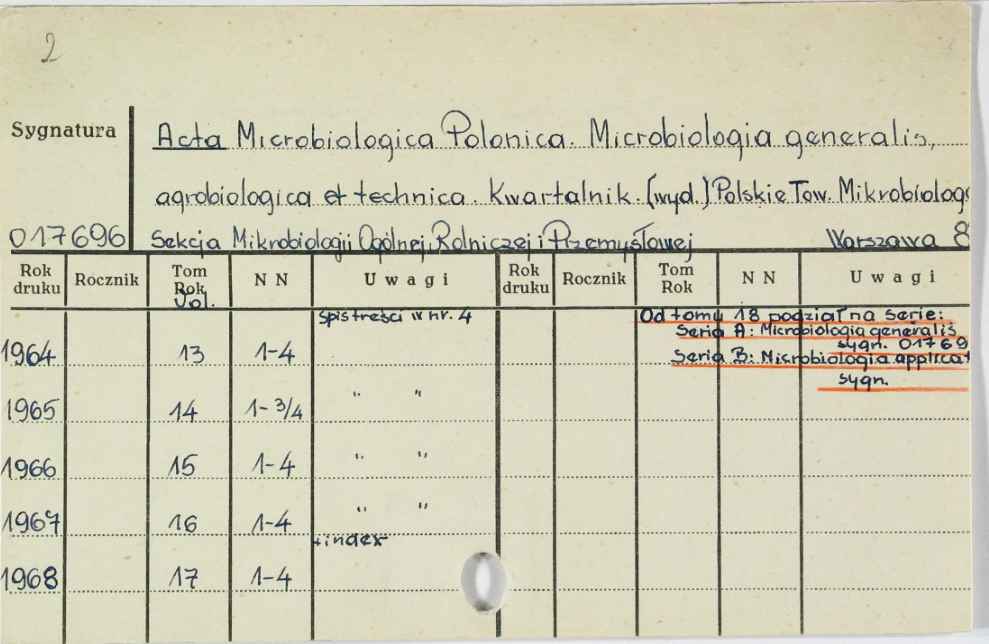 2
Sygnatura
Acta Microbiologica Polonica. Microbiologia generalis,
agrobiologica et technica. Kwartalnik. [wyd.] Polskie Tow. Mikrobiolog
017696 Sekcja Mikrobiologii Ogólnej, Rolniczej i Przemysłowej Warszawa 8
Rok druku Rocznik Tom Rok Vol. NN Uwagi Rok druku Rocznik Tom Rok NN Uwagi
spis treści w nr. 4 Od tomu 18 podział na serie:
Seria A: Microbiologia generalis
1964 13 1-4 sygn. 01769
Seria B: Microbiologia applicat
sygn.
1965 14 1-3/4 " "
1966 15 1-4 " "
1967 16 1-4 " "
+index
1968 17 1-4